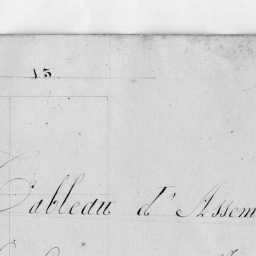 13
Tableau d'Assem